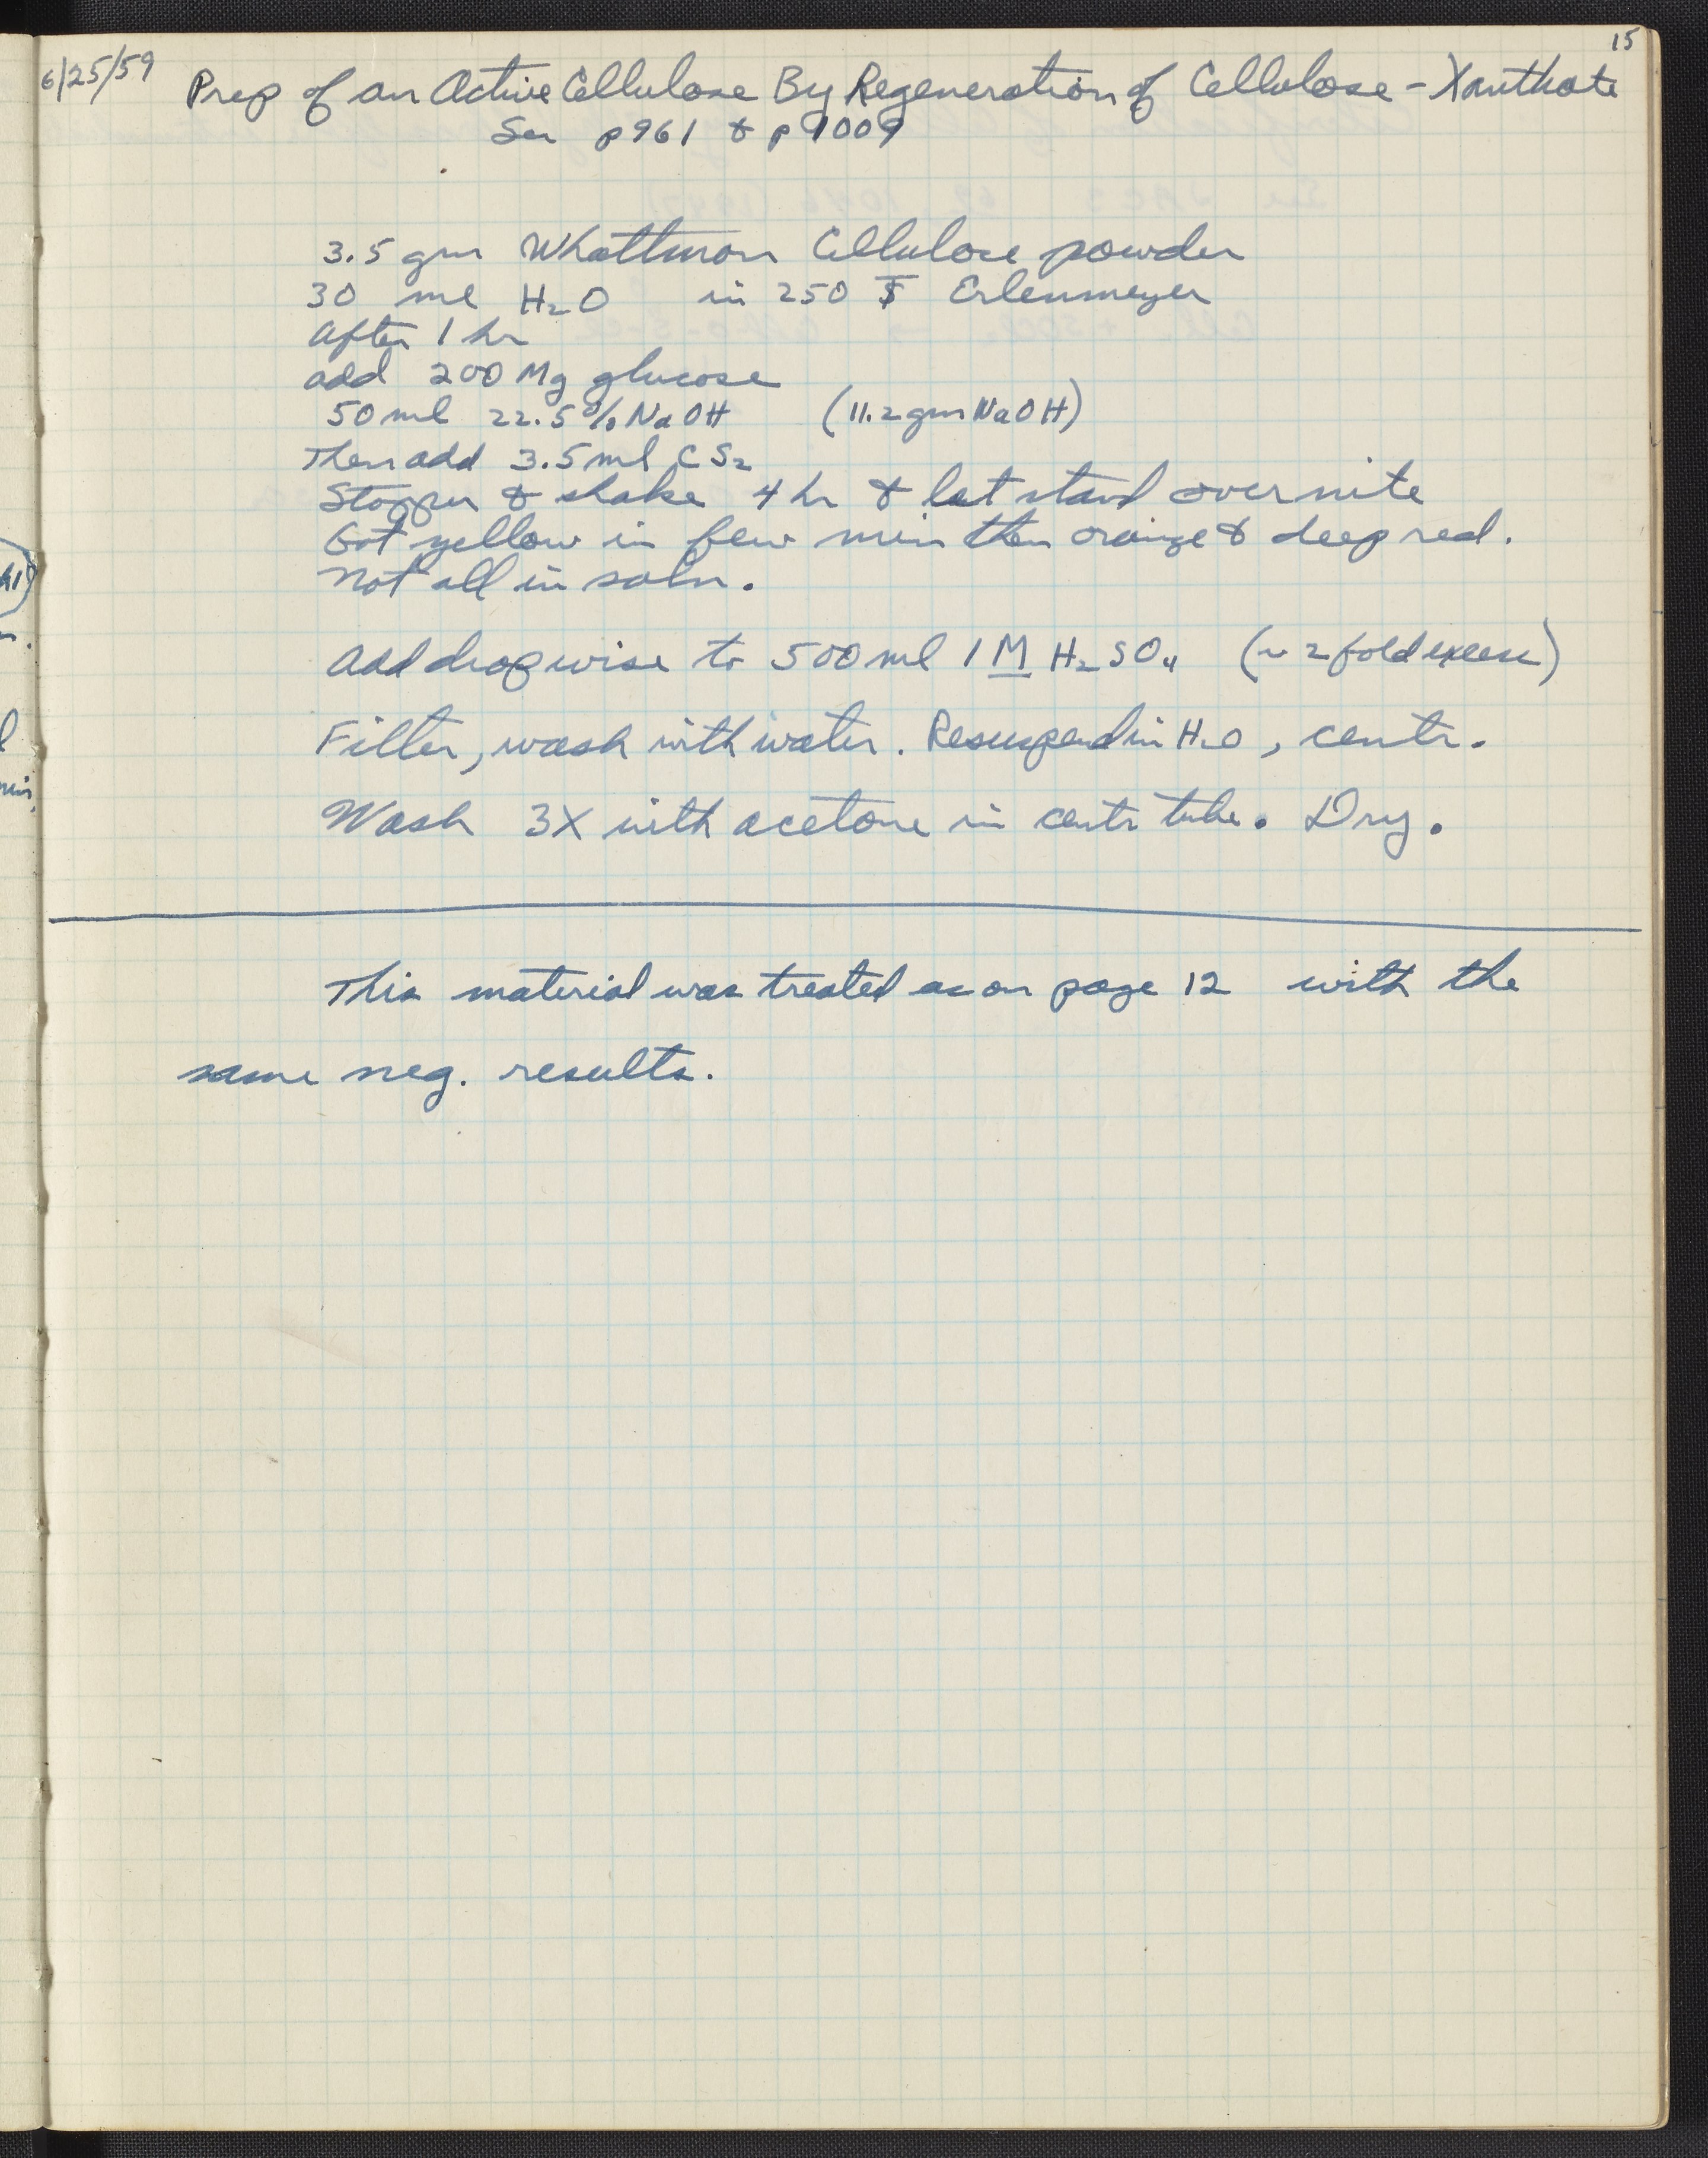 15
6/25/59 Prep of an Active Cellulose By Regeneration of Cellulose - Xanthate
See p961 & p1009
3.5 gm Whattman Cellulose powder
30 ml H₂O in 250 Erlenmeyer
After 1 hr
add 200 Mg glucose
50 ml 22.5% NaOH (11.2 gm NaOH)
Then add 3.5 ml CS₂
Stopper & shake 4 hr & let stand over nite
Got yellow in few min then orange & deep red.
Not all in soln.
Add dropwise to 500 ml 1 M H₂SO₄ (~ 2 fold excess)
Filter, wash with water. Resuspend in H₂O, centr.
Wash 3X with acetone in centr tube. Dry.
This material was treated as on page 12 with the
same neg. results.